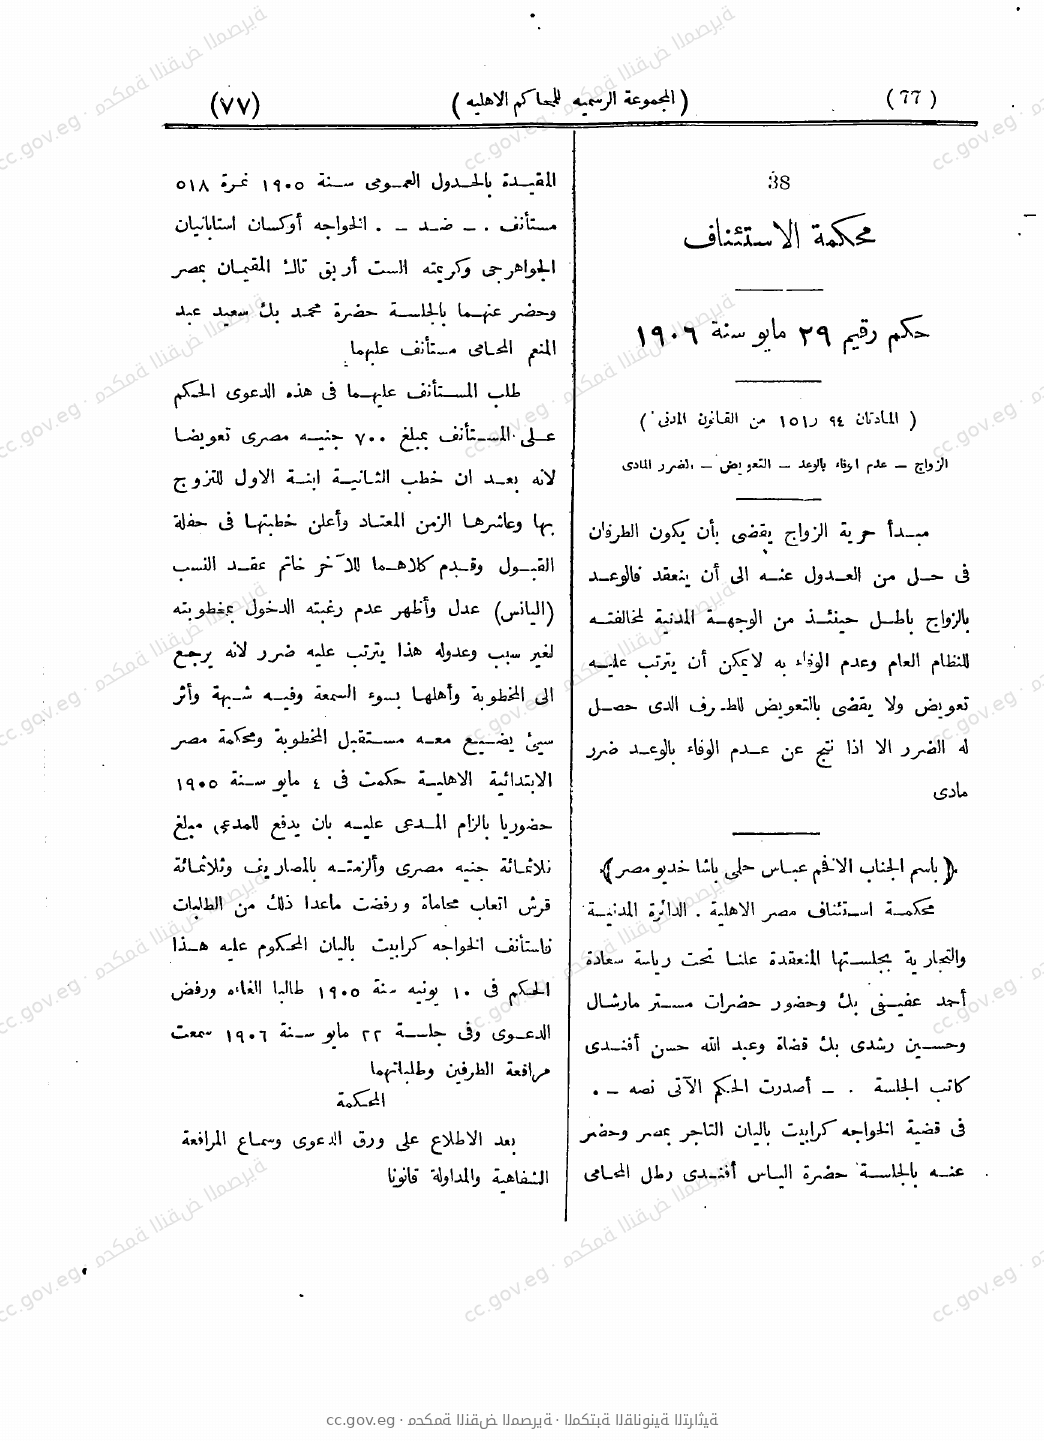 ( 77 )
( المجموعة الرسميه للمحاكم الاهليه )
(٧٧)
38
محكمة الاستئناف
حكم رقيم ٢٩ مايو سنة ١٩٠٦
( المادتان ٩٤ و١٥١ من القانون المدنى )
الزواج – عدم الوفاء بالوعد – التعويض – الضرر المادى
مبدأ حرية الزواج يقضى بأن يكون الطرفان
فى حل من العدول عنه الى أن ينعقد فالوعد
بالزواج باطل حينئذ من الوجهة المدنية لمخالفته
للنظام العام وعدم الوفاء به لايمكن أن يترتب عليه
تعويض ولا يقضى بالتعويض للطرف الذى حصل
له الضرر الا اذا نتج عن عدم الوفاء بالوعد ضرر
مادى
﴿ باسم الجناب الافخم عباس حلمى باشا خديو مصر ﴾
محكمة استئناف مصر الاهلية . الدائرة المدنية
والتجارية بجلستها المنعقدة علنا تحت رياسة سعادة
أحمد عفيفى بك وحضور حضرات مستر مارشال
وحسين رشدى بك قضاة وعبد الله حسن أفندى
كاتب الجلسة . – أصدرت الحكم الآتى نصه – .
فى قضية الخواجه كرابيت باليان التاجر بمصر وحضر
عنه بالجلسة حضرة الياس أفندى رطل المحامى
المقيدة بالجدول العمومى سنة ١٩٠٥ نمرة ٥١٨
مستأنف . – ضد – . الخواجه أوكسان استابانيان
الجواهرجى وكريمته الست أربق تاك المقيمان بمصر
وحضر عنهما بالجلسة حضرة محمد بك سعيد عبد
المنعم المحامى مستأنف عليهما
طلب المستأنف عليهما فى هذه الدعوى الحكم
على المستأنف بمبلغ ٧٠٠ جنيه مصرى تعويضا
لانه بعد ان خطب الثانية ابنة الاول للتزوج
بها وعاشرها الزمن المعتاد وأعلن خطبتها فى حفلة
القبول وقدم كلاهما للآخر خاتم عقد النسب
(اليانس) عدل وأظهر عدم رغبته الدخول بمخطوبته
لغير سبب وعدوله هذا يترتب عليه ضرر لانه يرجع
الى المخطوبة وأهلها بسوء السمعة وفيه شبهة وأثر
سيئ يضيع معه مستقبل المخطوبة ومحكمة مصر
الابتدائية الاهلية حكمت فى ٤ مايو سنة ١٩٠٥
حضوريا بالزام المدعى عليه بان يدفع للمدعى مبلغ
ثلاثمائة جنيه مصرى وألزمته بالمصاريف وثلاثمائة
قرش اتعاب محاماة ورفضت ماعدا ذلك من الطلبات
فاستأنف الخواجه كرابيت باليان المحكوم عليه هذا
الحكم فى ١٠ يونيه سنة ١٩٠٥ طالبا الغاءه ورفض
الدعوى وفى جلسة ٢٢ مايو سنة ١٩٠٦ سمعت
مرافعة الطرفين وطلباتهما
المحكمة
بعد الاطلاع على ورق الدعوى وسماع المرافعة
الشفاهية والمداولة قانونا
cc.gov.eg · محكمة النقض المصرية · المكتبة القانونية التراثية